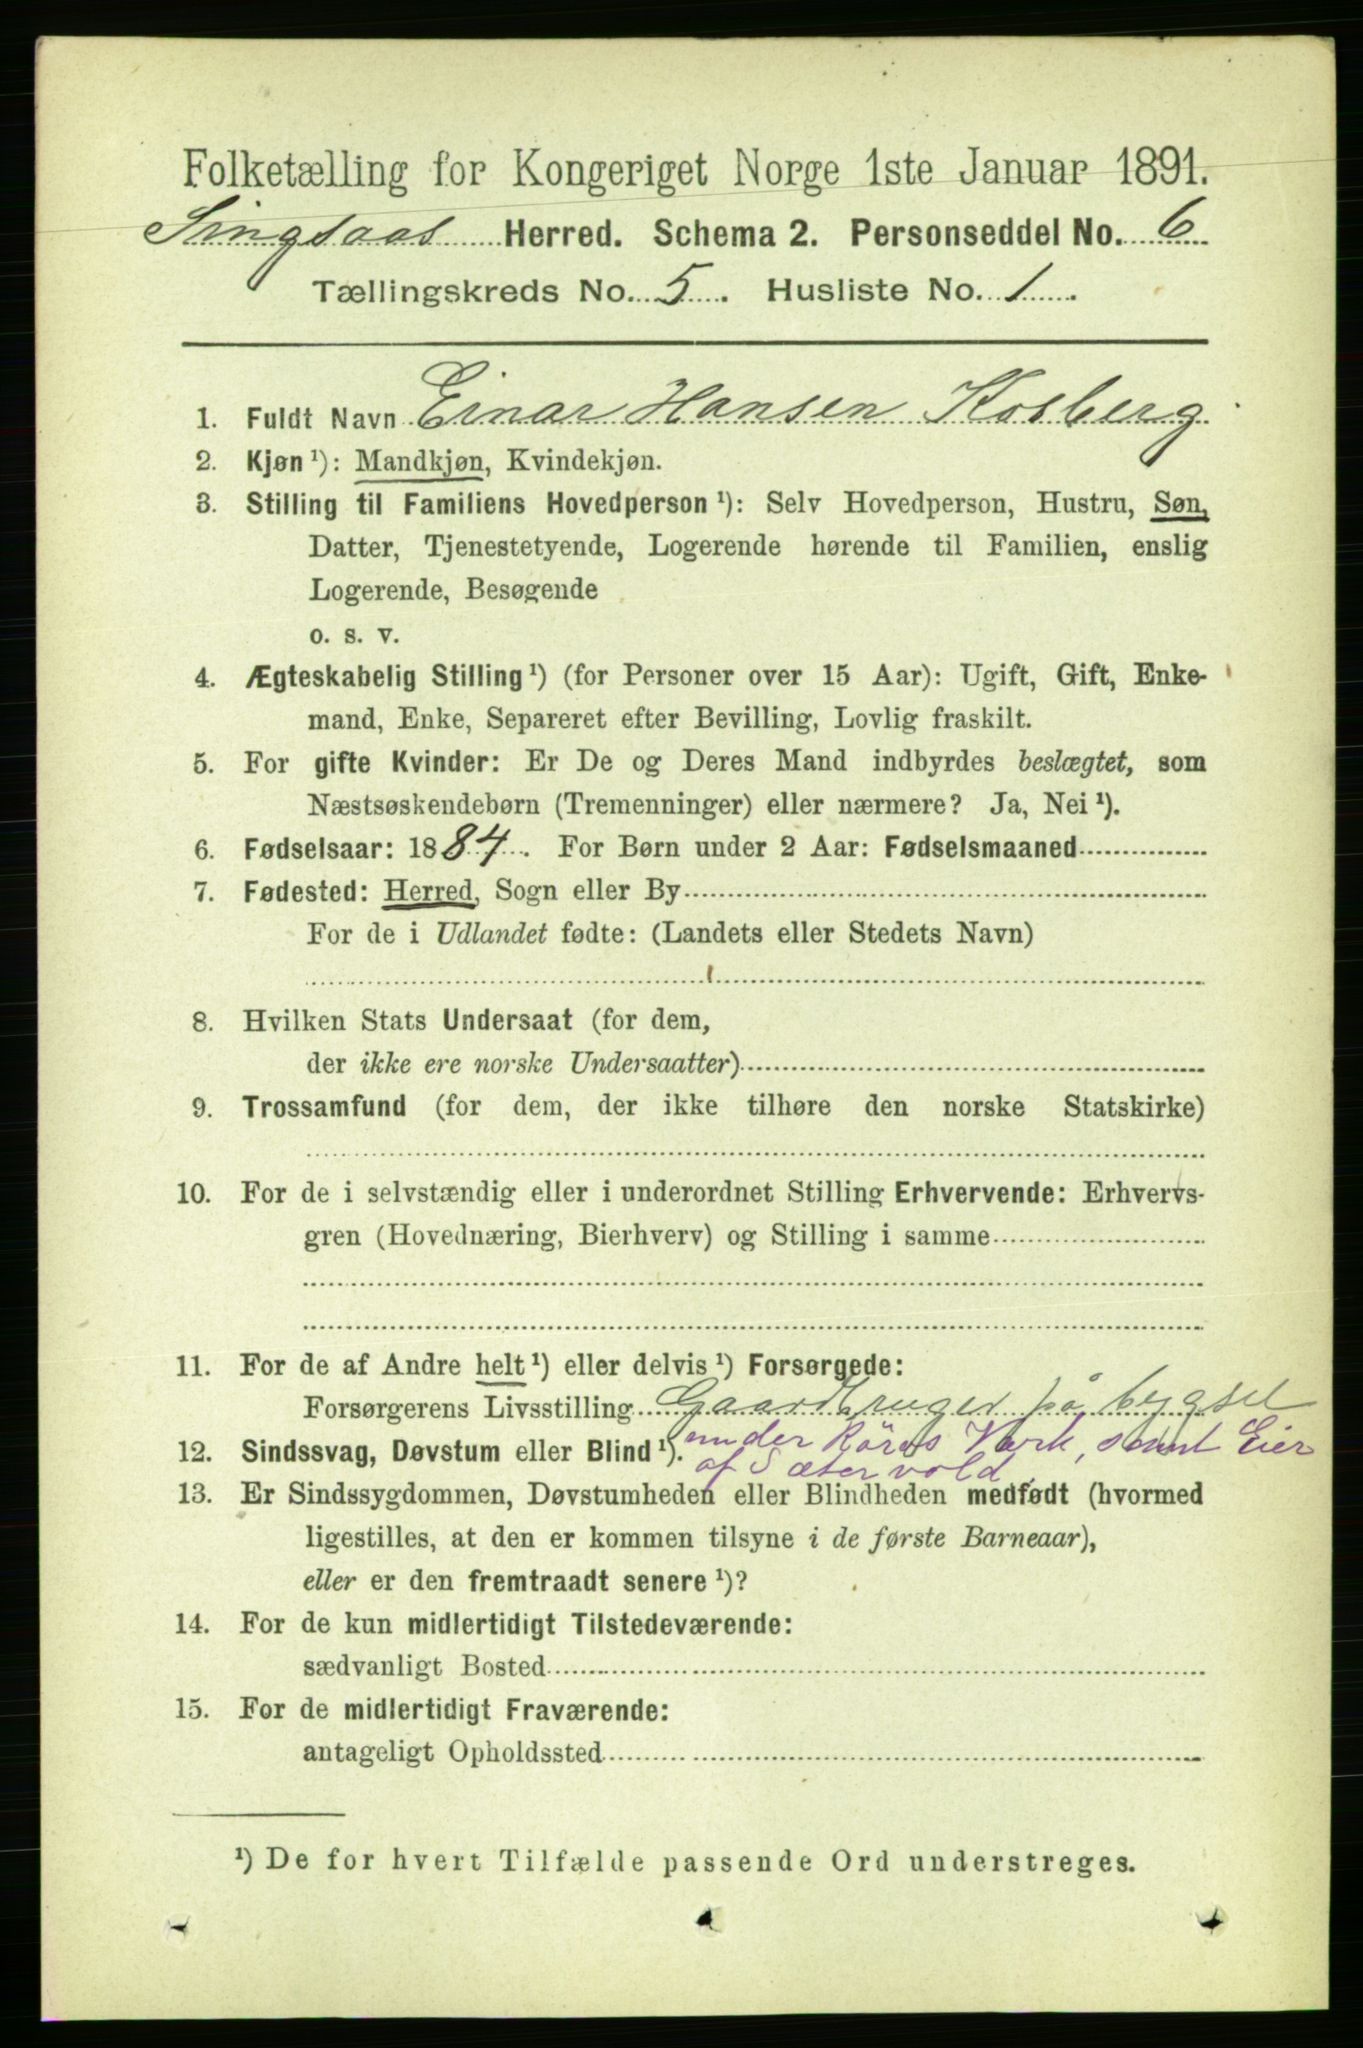 Folketælling for Kongeriget Norge 1ste Januar 1891.
Singsaas Herred. Schema 2. Personseddel No. 6
Tællingskreds No. 5. Husliste No. 1.
1. Fuldt Navn Einar Hansen Kosberg
2. Kjøn ¹): Mandkjøn, Kvindekjøn.
3. Stilling til Familiens Hovedperson ¹): Selv Hovedperson, Hustru, Søn,
Datter, Tjenestetyende, Logerende hørende til Familien, enslig
Logerende, Besøgende
o. s. v.
4. Ægteskabelig Stilling ¹) (for Personer over 15 Aar): Ugift, Gift, Enke-
mand, Enke, Separeret efter Bevilling, Lovlig fraskilt.
5. For gifte Kvinder: Er De og Deres Mand indbyrdes beslægtet, som
Næstsøskendebørn (Tremenninger) eller nærmere? Ja, Nei ¹).
6. Fødselsaar: 1884. For Børn under 2 Aar: Fødselsmaaned
7. Fødested: Herred, Sogn eller By
For de i Udlandet fødte: (Landets eller Stedets Navn)
8. Hvilken Stats Undersaat (for dem,
der ikke ere norske Undersaatter)
9. Trossamfund (for dem, der ikke tilhøre den norske Statskirke)
10. For de i selvstændig eller i underordnet Stilling Erhvervende: Erhvervs-
gren (Hovednæring, Bierhverv) og Stilling i samme
11. For de af Andre helt ¹) eller delvis ¹) Forsørgede:
Forsørgerens Livsstilling Gaardbruger på bygsel
under Röros Værk, samt Eier
12. Sindssvag, Døvstum eller Blind ¹).
af Sætervold.
13. Er Sindssygdommen, Døvstumheden eller Blindheden medfødt (hvormed
ligestilles, at den er kommen tilsyne i de første Barneaar),
eller er den fremtraadt senere ¹)?
14. For de kun midlertidigt Tilstedeværende:
sædvanligt Bosted
15. For de midlertidigt Fraværende:
antageligt Opholdssted
¹) De for hvert Tilfælde passende Ord understreges.